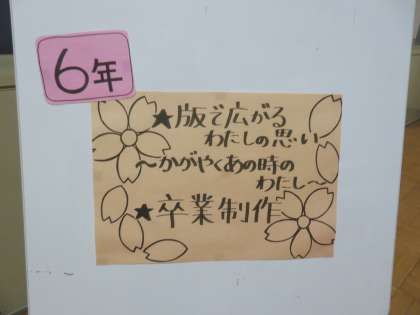 6年
★版で広がる
わたしの思い
～かがやくあの時の
わたし～
★卒業制作